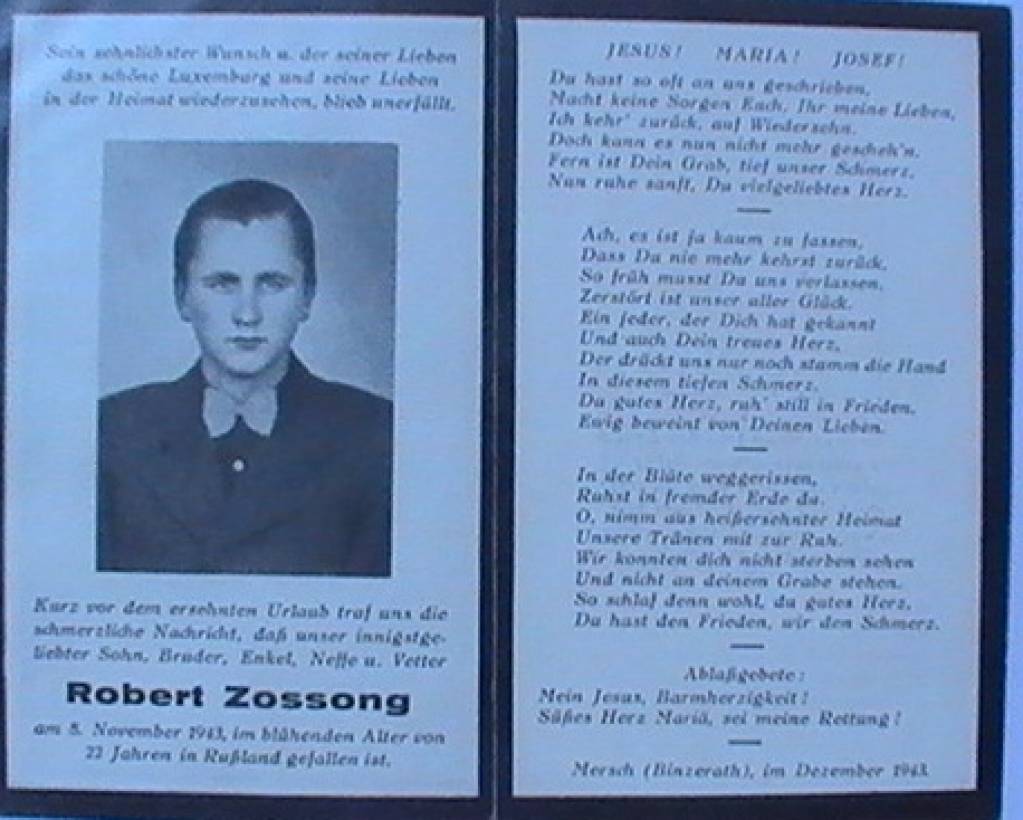 Sein sehnlichster Wunsch u. der seiner Lieben
das schöne Luxemburg und seine Lieben
in der Heimat wiederzusehen, blieb unerfüllt.
Kurz vor dem ersehnten Urlaub traf uns die
schmerzliche Nachricht, daß unser innigstge-
liebter Sohn, Bruder, Enkel, Neffe u. Vetter
Robert Zossong
am 8. November 1943, im blühenden Alter von
22 Jahren in Rußland gefallen ist.
JESUS! MARIA! JOSEF!
Du hast so oft an uns geschrieben,
Macht keine Sorgen Euch, Ihr meine Lieben,
Ich kehr' zurück, auf Wiedersehn.
Doch kann es nun nicht mehr gescheh'n.
Fern ist Dein Grab, tief unser Schmerz,
Nun ruhe sanft, Du vielgeliebtes Herz.
Ach, es ist ja kaum zu fassen,
Dass Du nie mehr kehrst zurück,
So früh musst Du uns verlassen,
Zerstört ist unser aller Glück.
Ein jeder, der Dich hat gekannt
Und auch Dein treues Herz,
Der drückt uns nur noch stumm die Hand
In diesem tiefen Schmerz.
Du gutes Herz, ruh' still in Frieden,
Ewig beweint von Deinen Lieben.
In der Blüte weggerissen,
Ruhst in fremder Erde du.
O, nimm aus heißersehnter Heimat
Unsere Tränen mit zur Ruh.
Wir konnten dich nicht sterben sehen
Und nicht an deinem Grabe stehen.
So schlaf denn wohl, du gutes Herz,
Du hast den Frieden, wir den Schmerz.
Ablaßgebete:
Mein Jesus, Barmherzigkeit!
Süßes Herz Mariä, sei meine Rettung!
Mersch (Binzerath), im Dezember 1943.